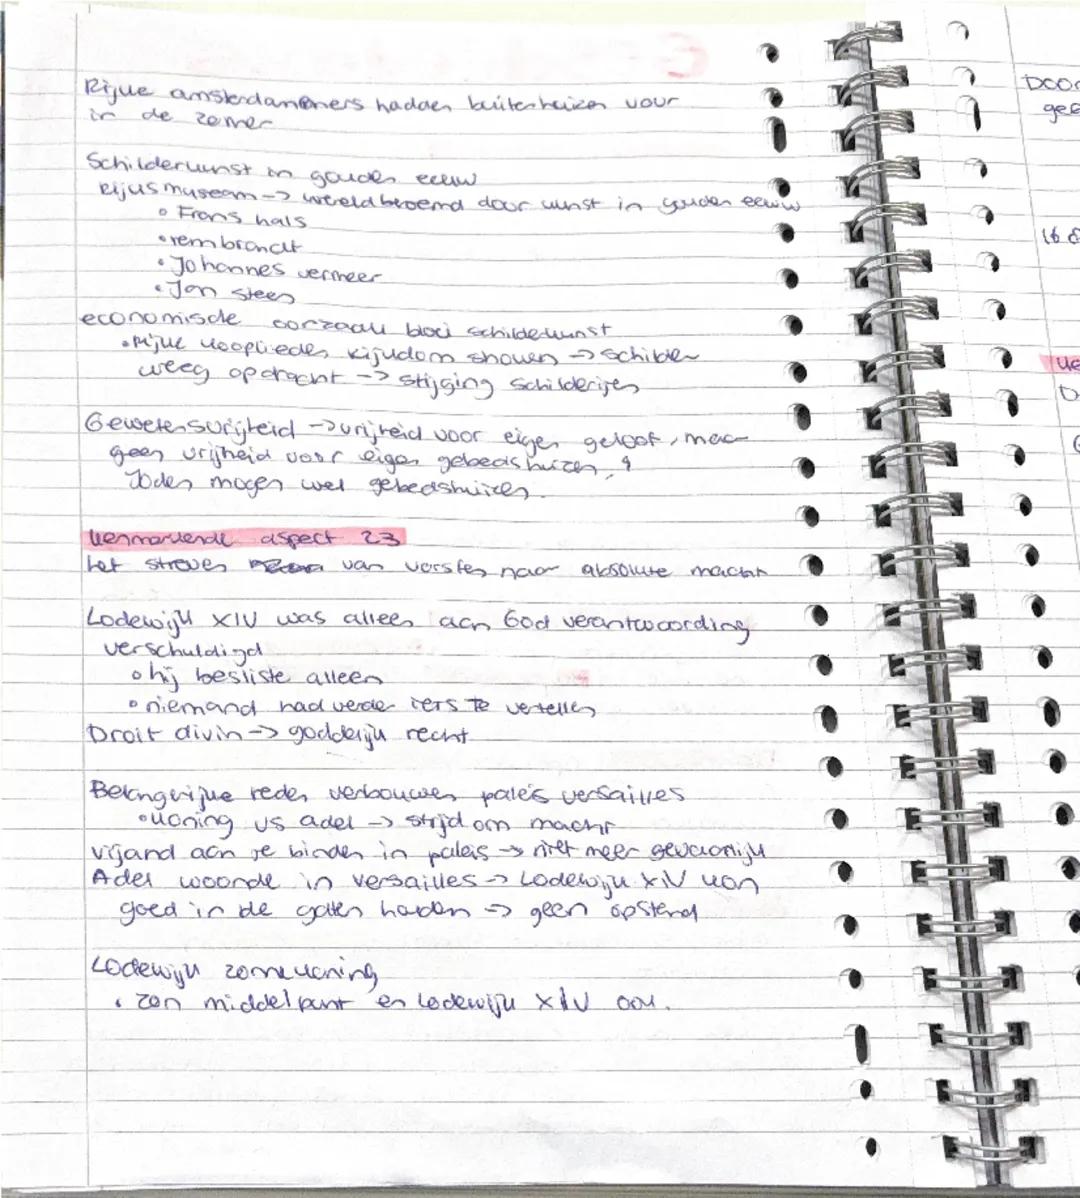 Rijke amsterdammers hadden buitenhuizen voor
in de zomer
Schilderkunst in gouden eeuw
Rijksmuseam -> wereldberoemd door kunst in gouden eeuw
• Frans hals
• rembrandt
• Johannes vermeer
• Jan steen
economische oorzaak bloei schilderkunst
• Rijke kooplieden rijkdom showen -> schilder
kreeg opdracht -> stijging schilderijen
Gewetensvrijheid -> vrijheid voor eigen geloof, maar
geen vrijheid voor eigen gebedshuizen,
Joden mogen wel gebedshuizen.
kenmerkende aspect 23
het streven van vorsten naar absolute macht
Lodewijk XIV was alleen aan God verantwoording
verschuldigd
• hij besliste alleen
• niemand had verder iets te vertellen
Droit divin -> goddelijk recht
Belangrijke reden verbouwen paleis versailles
• koning vs adel -> strijd om macht
vijand aan je binden in paleis -> niet meer gevaarlijk
Adel woonde in versailles -> Lodewijk XIV kon
goed in de gaten houden -> geen opstand
Lodewijk zonnekoning
• zon middelpunt en Lodewijk XIV ook.
Door
gee
16 e
ke
D